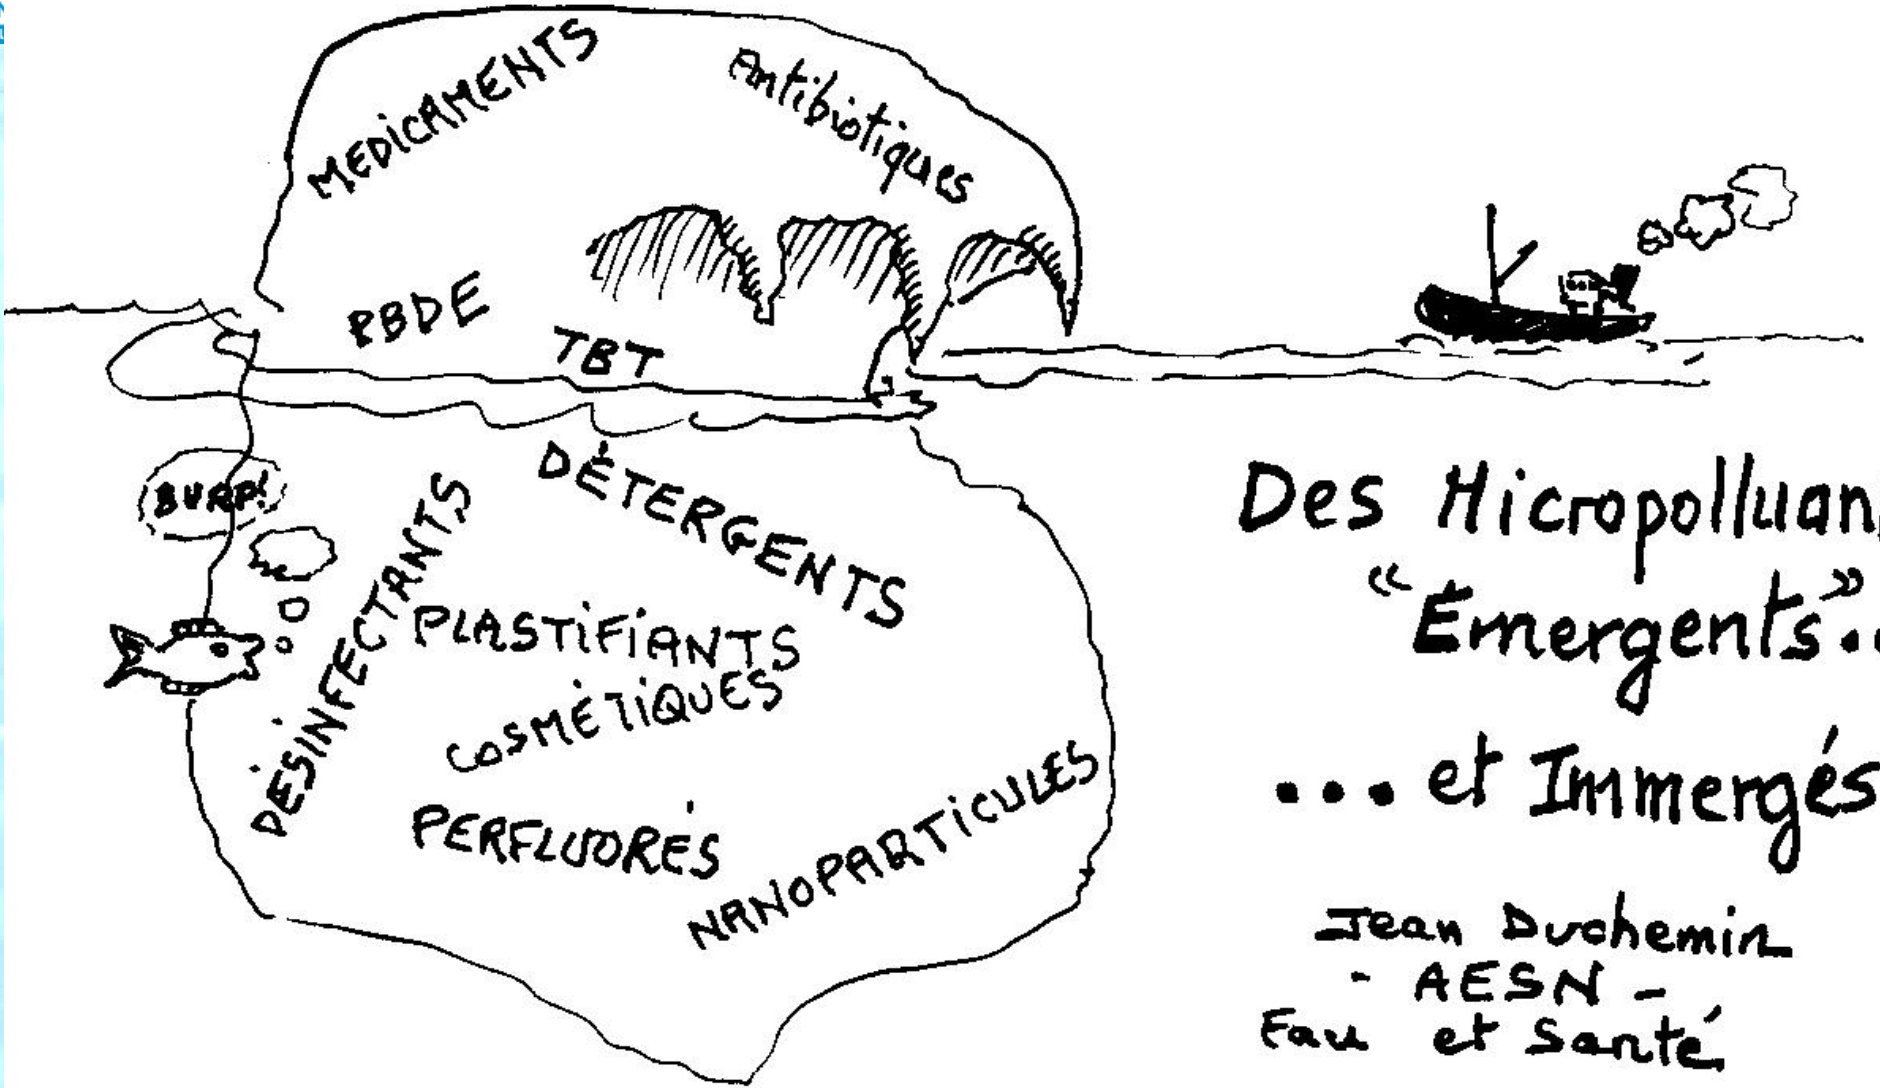 MEDICAMENTS
Antibiotiques
PBDE
TBT
BURP!
DÉTERGENTS
DÉSINFECTANTS
PLASTIFIANTS
COSMÉTIQUES
PERFLUORÉS
NANOPARTICULES
Des Micropolluan
"Émergents"..
... et Immergés
Jean Duchemin
- AESN -
Eau et Santé